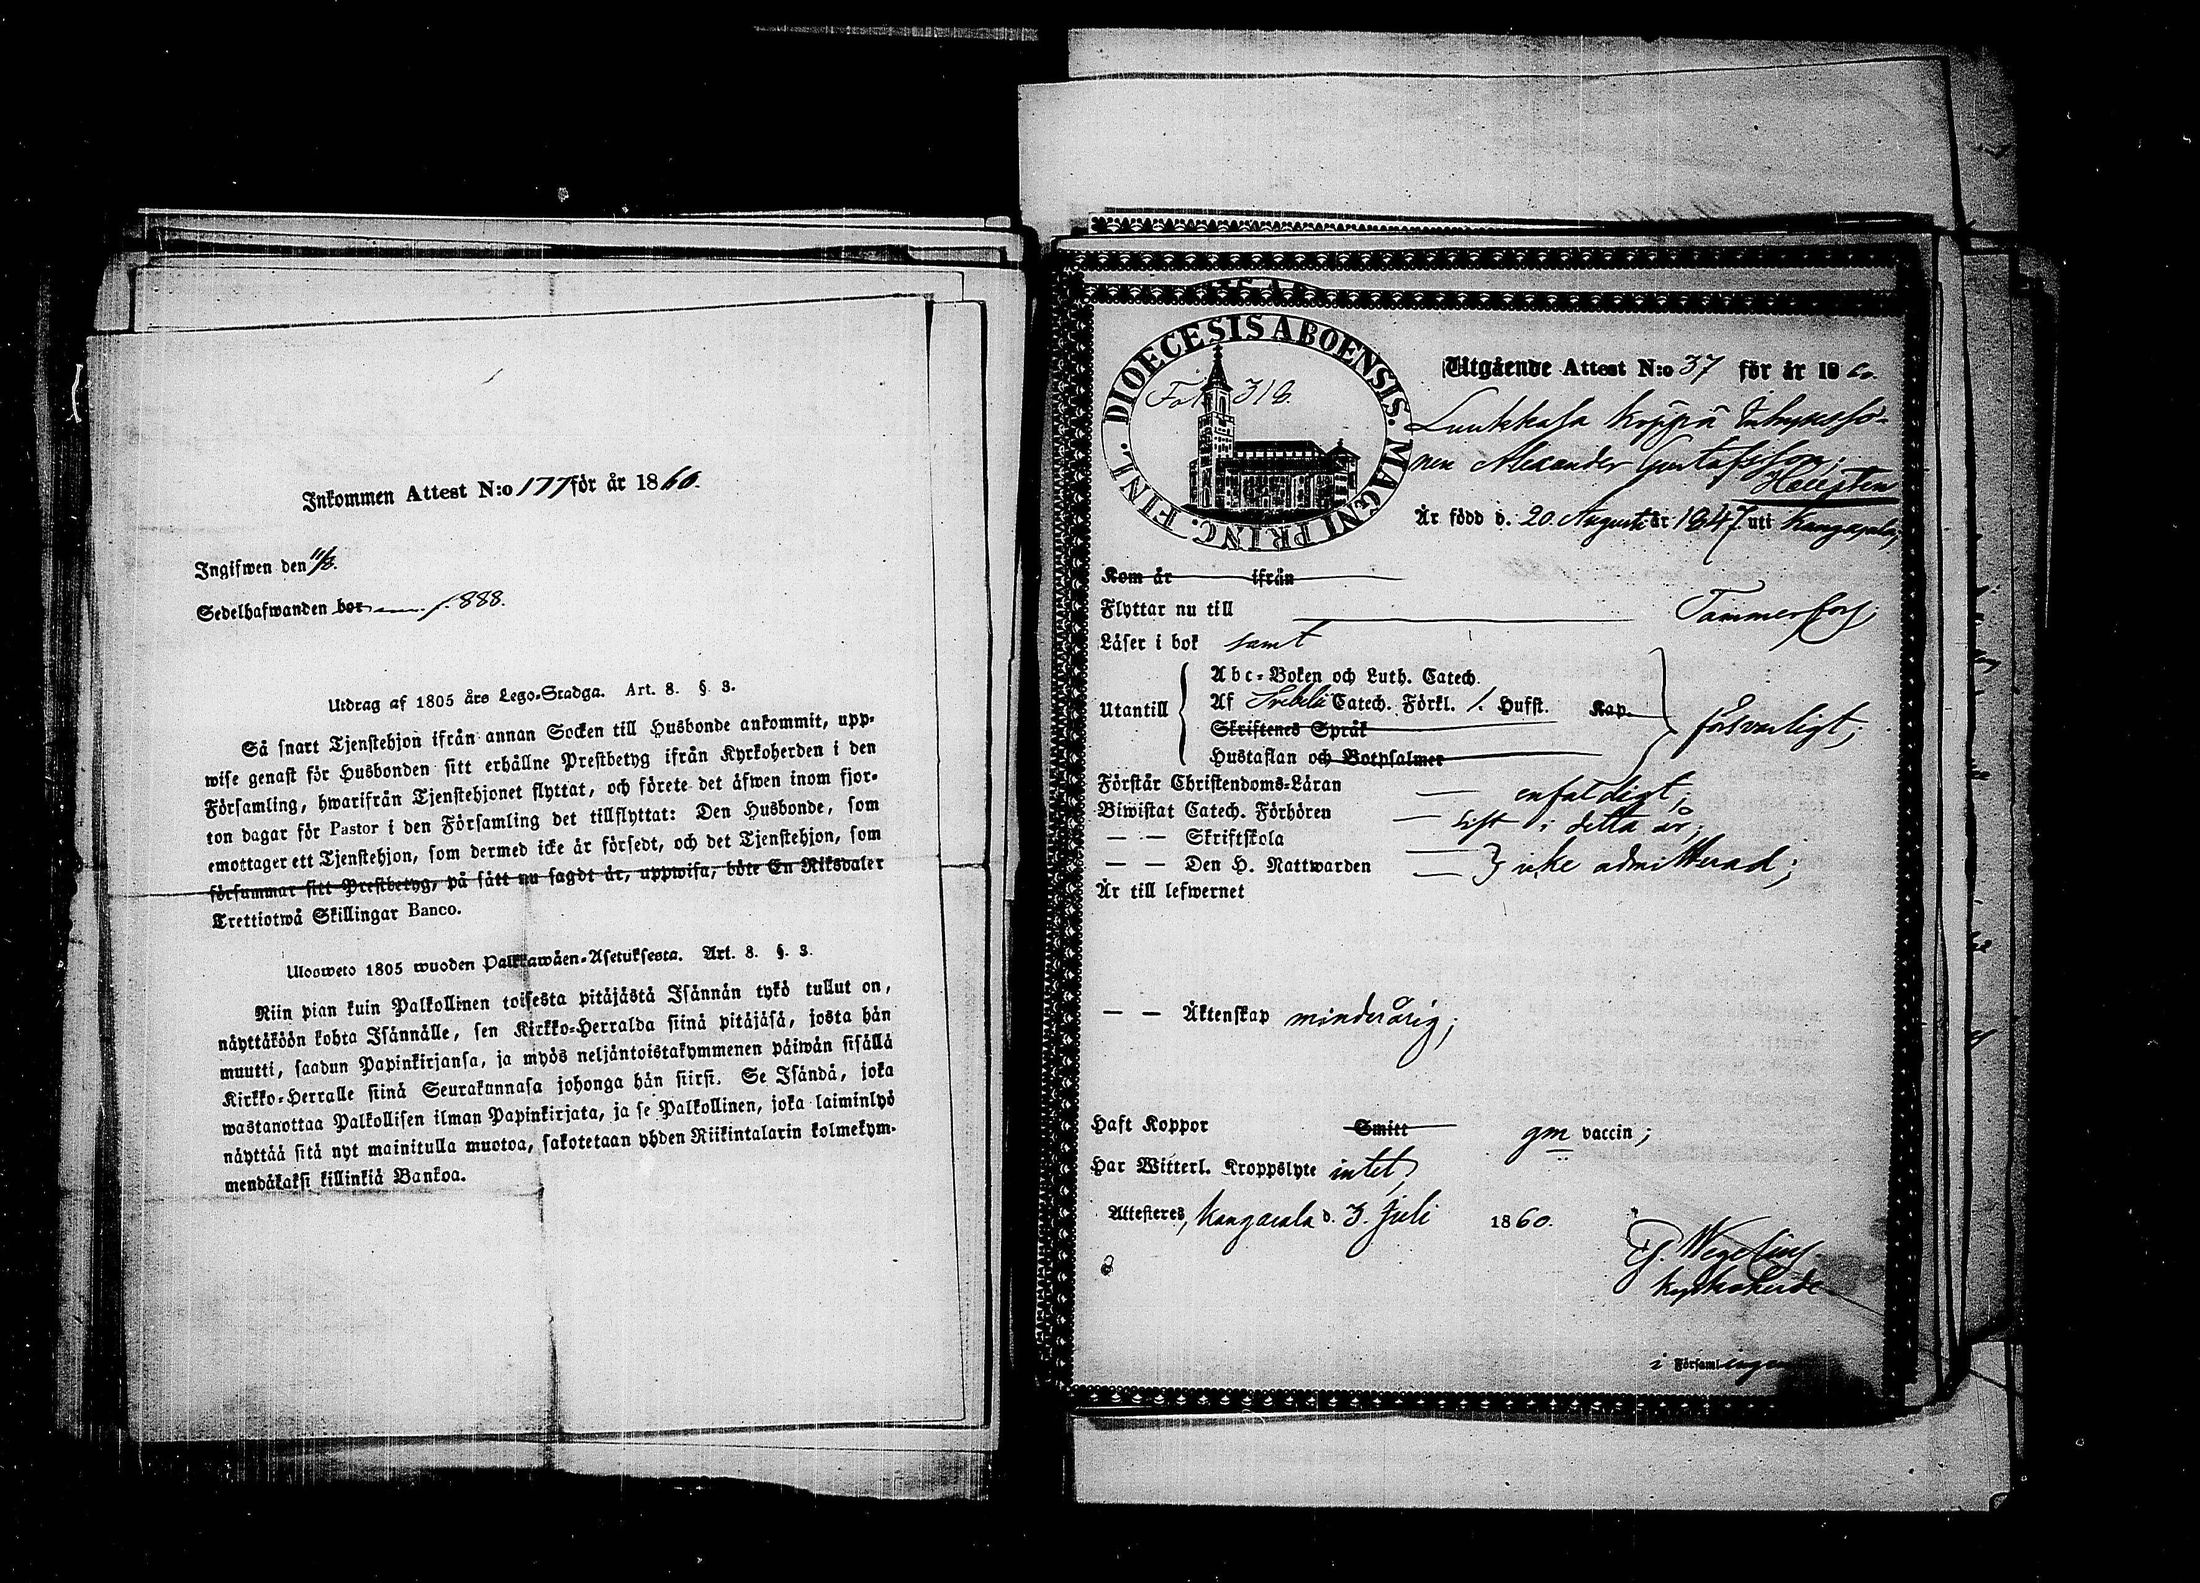 Inkommen Attest N:o 177 för år 1860.
Ingifwen den 11/8.
Sedelhafwanden bor f. 888.
Utdrag af 1805 års Lego-Stadga. Art. 8. § 3.
Så snart Tjenstehjon ifrån annan Socken till Husbonde ankommit, upp-
wise genast för Husbonden sitt erhållne Prestbetyg ifrån Kyrkoherden i den
Församling, hwarifrån Tjenstehjonet flyttat, och förete det äfwen inom fjor-
ton dagar för Pastor i den Församling det tillflyttat: Den Husbonde, som
emottager ett Tjenstehjon, som dermed icke är försedt, och det Tjenstehjon, som
försummar sitt Prestbetyg, på sätt nu sagdt är, uppwisa, böte En Riksdaler
Trettiotwå Skillingar Banco.
Ulosweto 1805 wuoden Palkkawäen-Asetuksesta. Art. 8. §. 3.
Niin pian kuin Palkollinen toisesta pitäjästä Isännän tykö tullut on,
näyttäköön kohta Isännälle, sen Kirkko-Herralda siinä pitäjäsä, josta hän
muutti, saadun Papinkirjansa, ja myös neljäntoistakymmenen päiwän sisällä
Kirkko-Herralle siinä Seurakunnasa johonga hän siirsi. Se Isändä, joka
wastanottaa Palkollisen ilman Papinkirjata, ja se Palkollinen, joka laiminlyö
näyttää sitä nyt mainitulla muotoa, sakotetaan yhden Riikintalarin kolmekym-
mendäkaksi killinkiä Bankoa.
DIOECESIS ABOENSIS. MAGNI PRINC. FINL.
Fol. 318.
Utgående Attest N:o 37 för år 1860.
Luukkala Koppä Inhyses so-
nen Alexander Gustafsson;
Är född d. 20 Augusti år 1847 uti Kangasala;
Kom år ifrån
Flyttar nu till Tammerfors;
Läser i bok samt
Utantill
Abc-Boken och Luth. Catech.
Af Svebelii Catech. Förkl. 1. Hufst. Kap.
Skriftenes Språk
Hustaflan och Botpsalmer
försvarligt;
Förstår Christendoms-Läran — enfaldigt;
Biwistat Catech. Förhören — sist i detta år;
— — Skriftskola
— — Den H. Nattwarden — icke admitterad;
Är till lefwernet
— — Äktenskap minderårig;
Haft Koppor Smitt gm vaccin;
Har Witterl. Kroppslyte intet,
Attesteres, Kangasala d. 3. Juli 1860.
G. Wegelius.
Kyrkoherde
i Församlingen